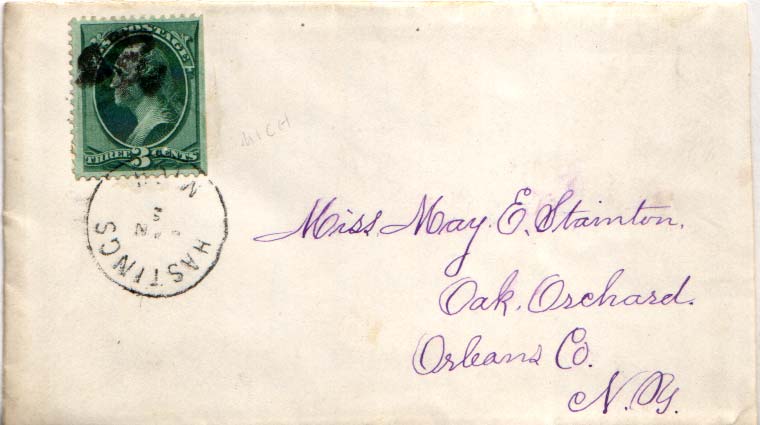 U.S. POSTAGE
THREE 3 CENTS
MICH
HASTINGS
MICH
Miss. May. E. Stainton.
Oak. Orchard.
Orleans Co.
N.Y.